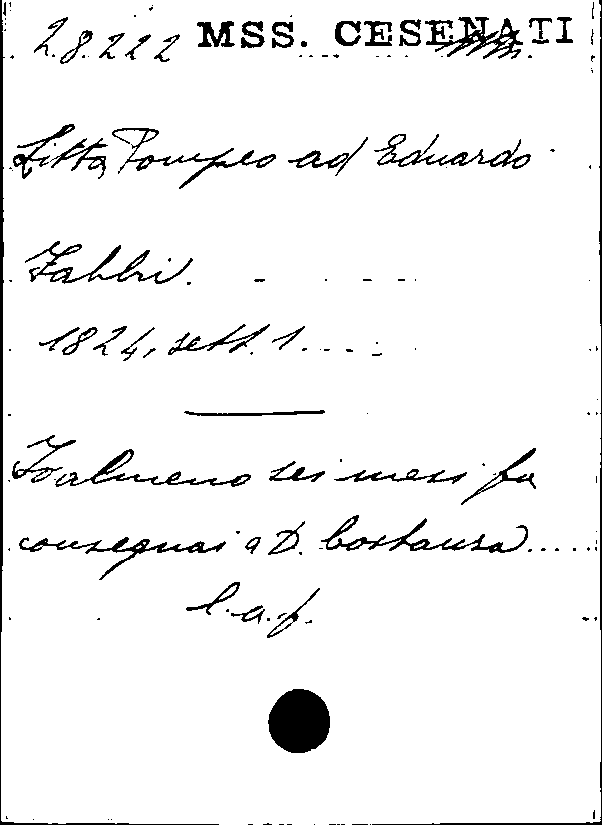 28.222 MSS. CESENATI
Litta Pompeo ad Eduardo
Fabbri.
1824, sett. 1.
Io almeno sei mesi fa
consegnai a D. Costanza....
l.a.f.